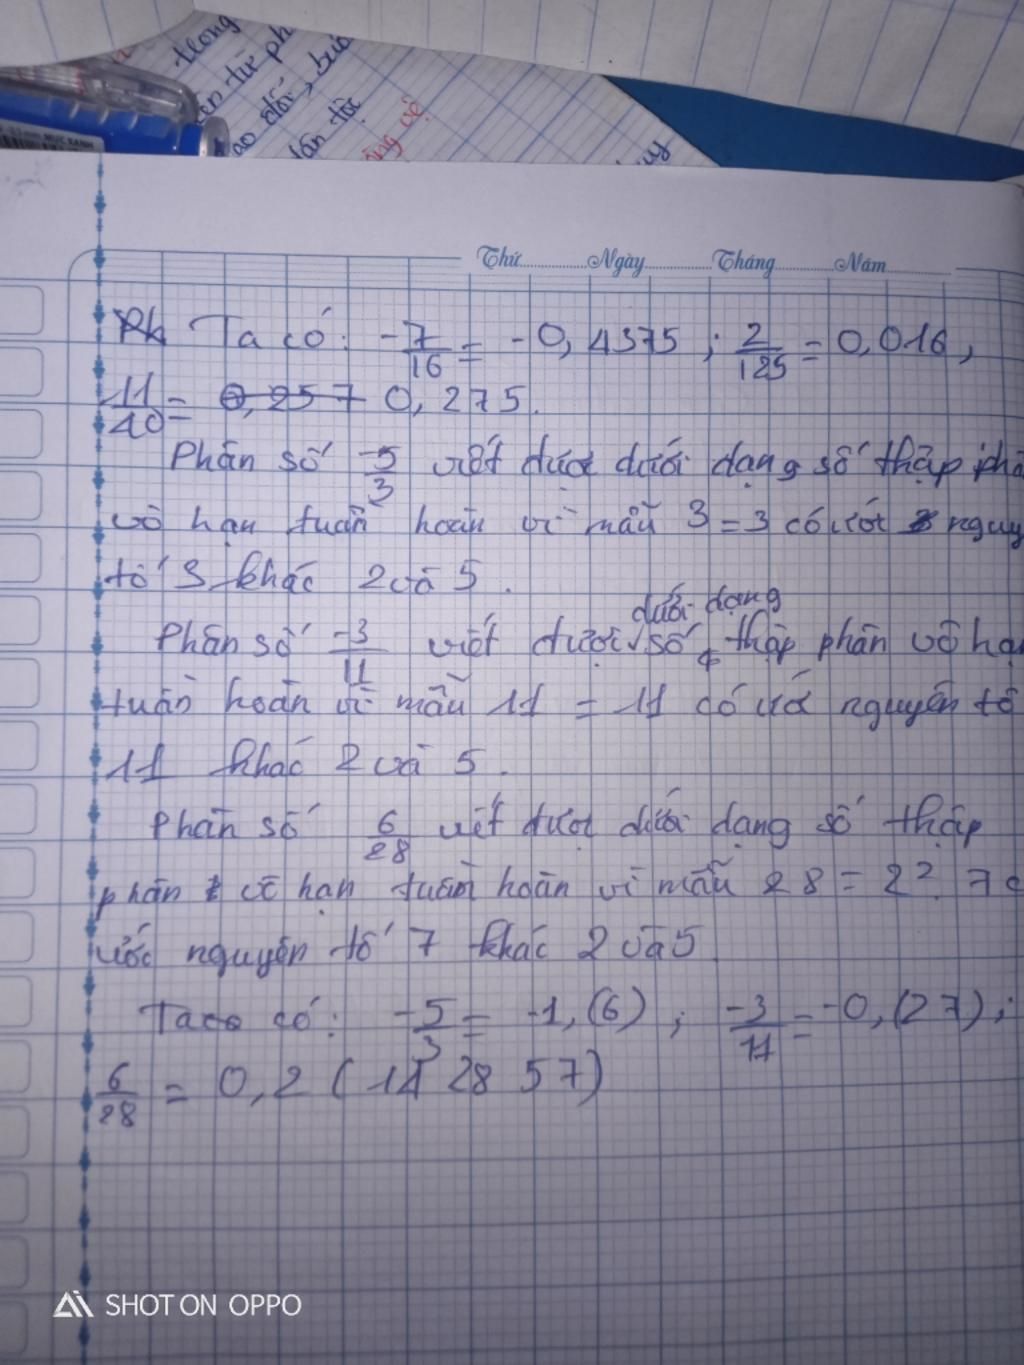 trong
ên từ ph
ao đổi, bứ
dân tộc
uy
Thứ Ngày Tháng Năm
Ta có: -7/16 = -0,4375 ; 2/125 = 0,016,
11/40 = 0,257 0,275.
Phân số -5/3 viết được dưới dạng số thập phâ
vô hạn tuần hoàn vì mẫu 3 = 3 có ước nguy
tố 3 khác 2 và 5.
dưới dạng
Phân số -3/11 viết được số thập phân vô hạn
tuần hoàn vì mẫu 11 = 11 có ướ nguyên tố
11 khác 2 và 5.
Phân số 6/28 viết được dưới dạng số thập
phân vô hạn tuần hoàn vì mẫu 28 = 2². 7 c
ước nguyên tố 7 khác 2 và 5.
Ta có: -5/3 = -1,(6) ; -3/11 = -0,(27);
6/28 = 0,2 (14 28 57)
SHOT ON OPPO